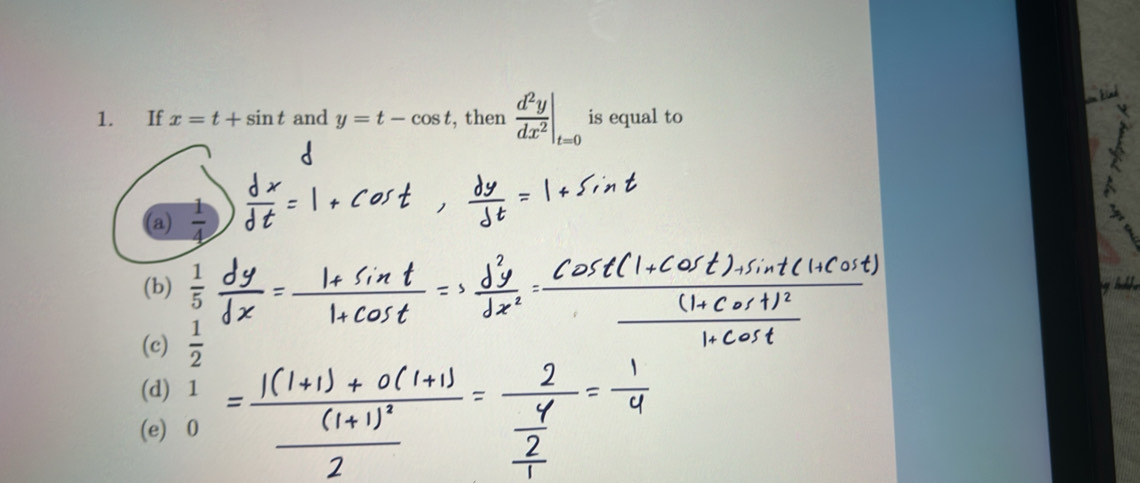 1. If x = t + sin t and y = t − cos t, then d²y/dx² |t=0 is equal to
d
(a) 1/4 dx/dt = 1 + cost , dy/dt = 1 + sint
(b) 1/5 dy/dx = (1 + sint)/(1 + cost) => d²y/dx² = (cost(1+cost)+sint(1+cost))/(1+cost)²/(1+cost)
(c) 1/2
(d) 1 = (1(1+1) + 0(1+1))/(1+1)²/2 = 2/4/2/1 = 1/4
(e) 0